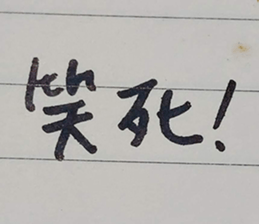 笑死!